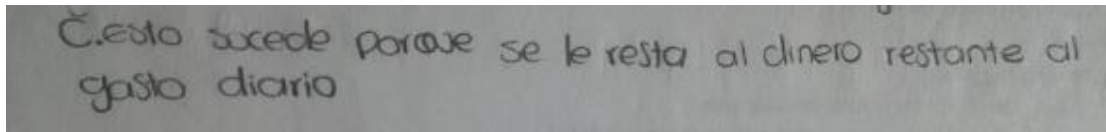 C.esto sucede porque se le resta al dinero restante al
gasto diario